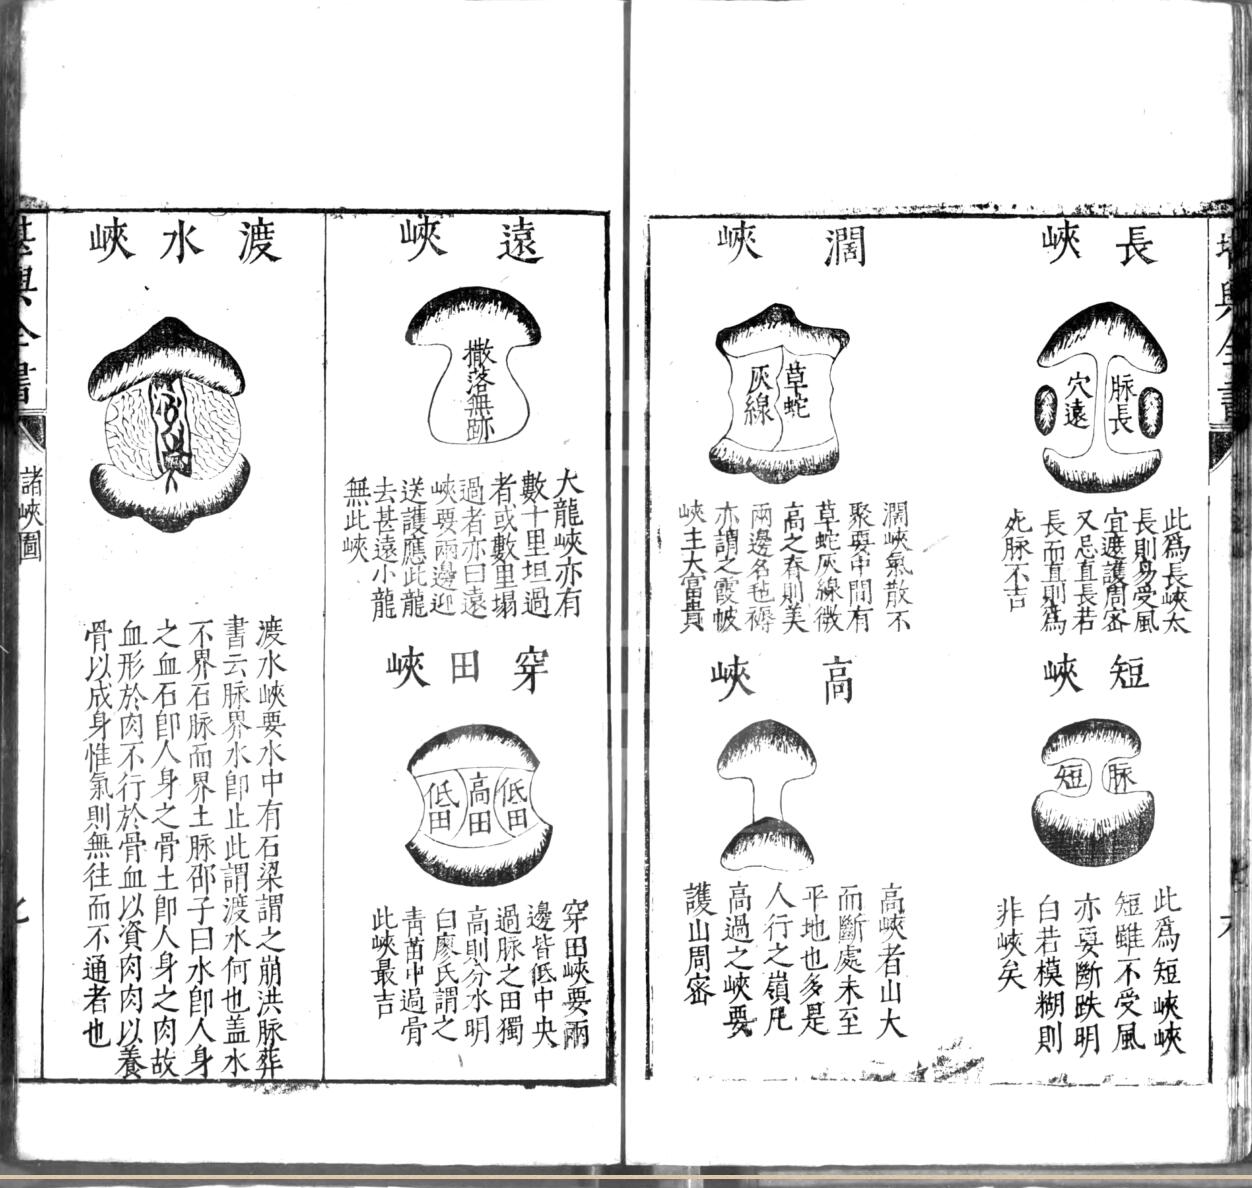 長峽
脉長
穴遠
此爲長峽太
長則易受風
宜遮護周密
又忌直長若
長而直則爲
死脉不吉
短峽
脉
短
此爲短峽峽
短雖不受風
亦要斷跌明
白若模糊則
非峽矣
濶峽
草蛇
灰線
濶峽氣散不
聚要中間有
草蛇灰線微
高之脊則美
兩邊名毡褥
亦謂之霞帔
峽主大富貴
高峽
高峽者山大
而斷處未至
平地也多是
人行之嶺凡
高過之峽要
護山周密
遠峽
撒落無跡
大龍峽亦有
數十里坦過
者或數里塌
過者亦曰遠
峽要兩邊迎
送護應此龍
去甚遠小龍
無此峽
穿田峽
低田
高田
低田
穿田峽要兩
邊皆低中央
過脉之田獨
高則分水明
白廖氏謂之
靑苗中過骨
此峽最吉
渡水峽
渡水峽要水中有石梁謂之崩洪脉葬
書云脉界水卽止此謂渡水何也盖水
不界石脉而界土脉邵子曰水卽人身
之血石卽人身之骨土卽人身之肉故
血形於肉不行於骨血以資肉肉以養
骨以成身惟氣則無往而不通者也
堪輿全書
諸峽圖